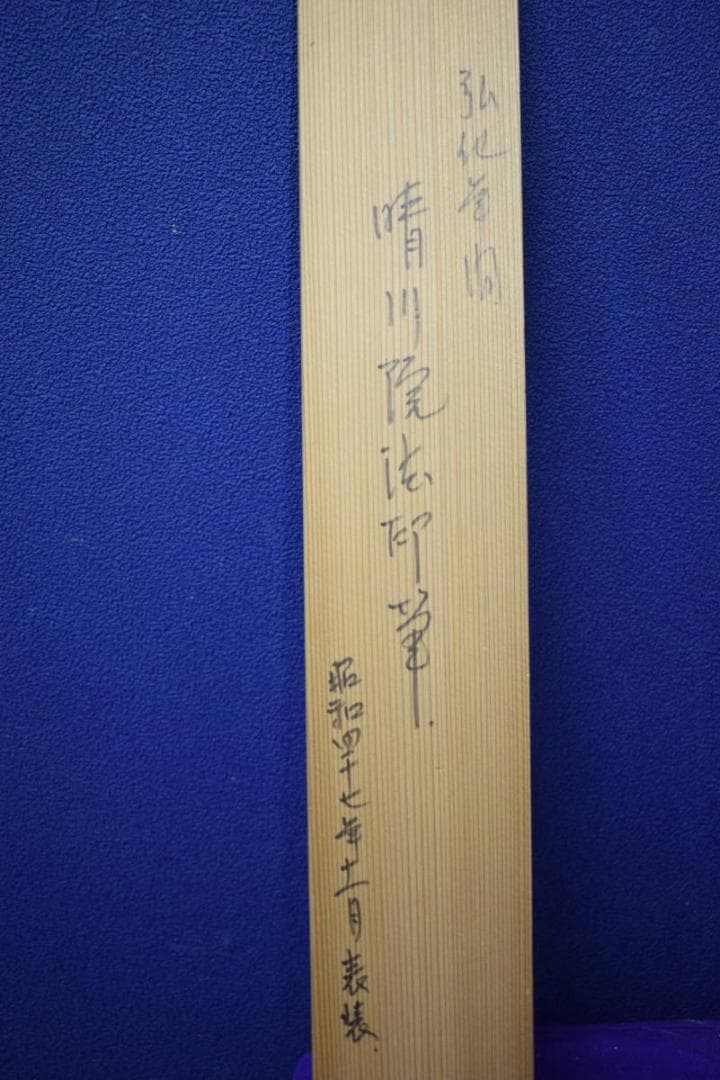 弘化年間
晴川院法印筆
昭和四十七年十一月表装